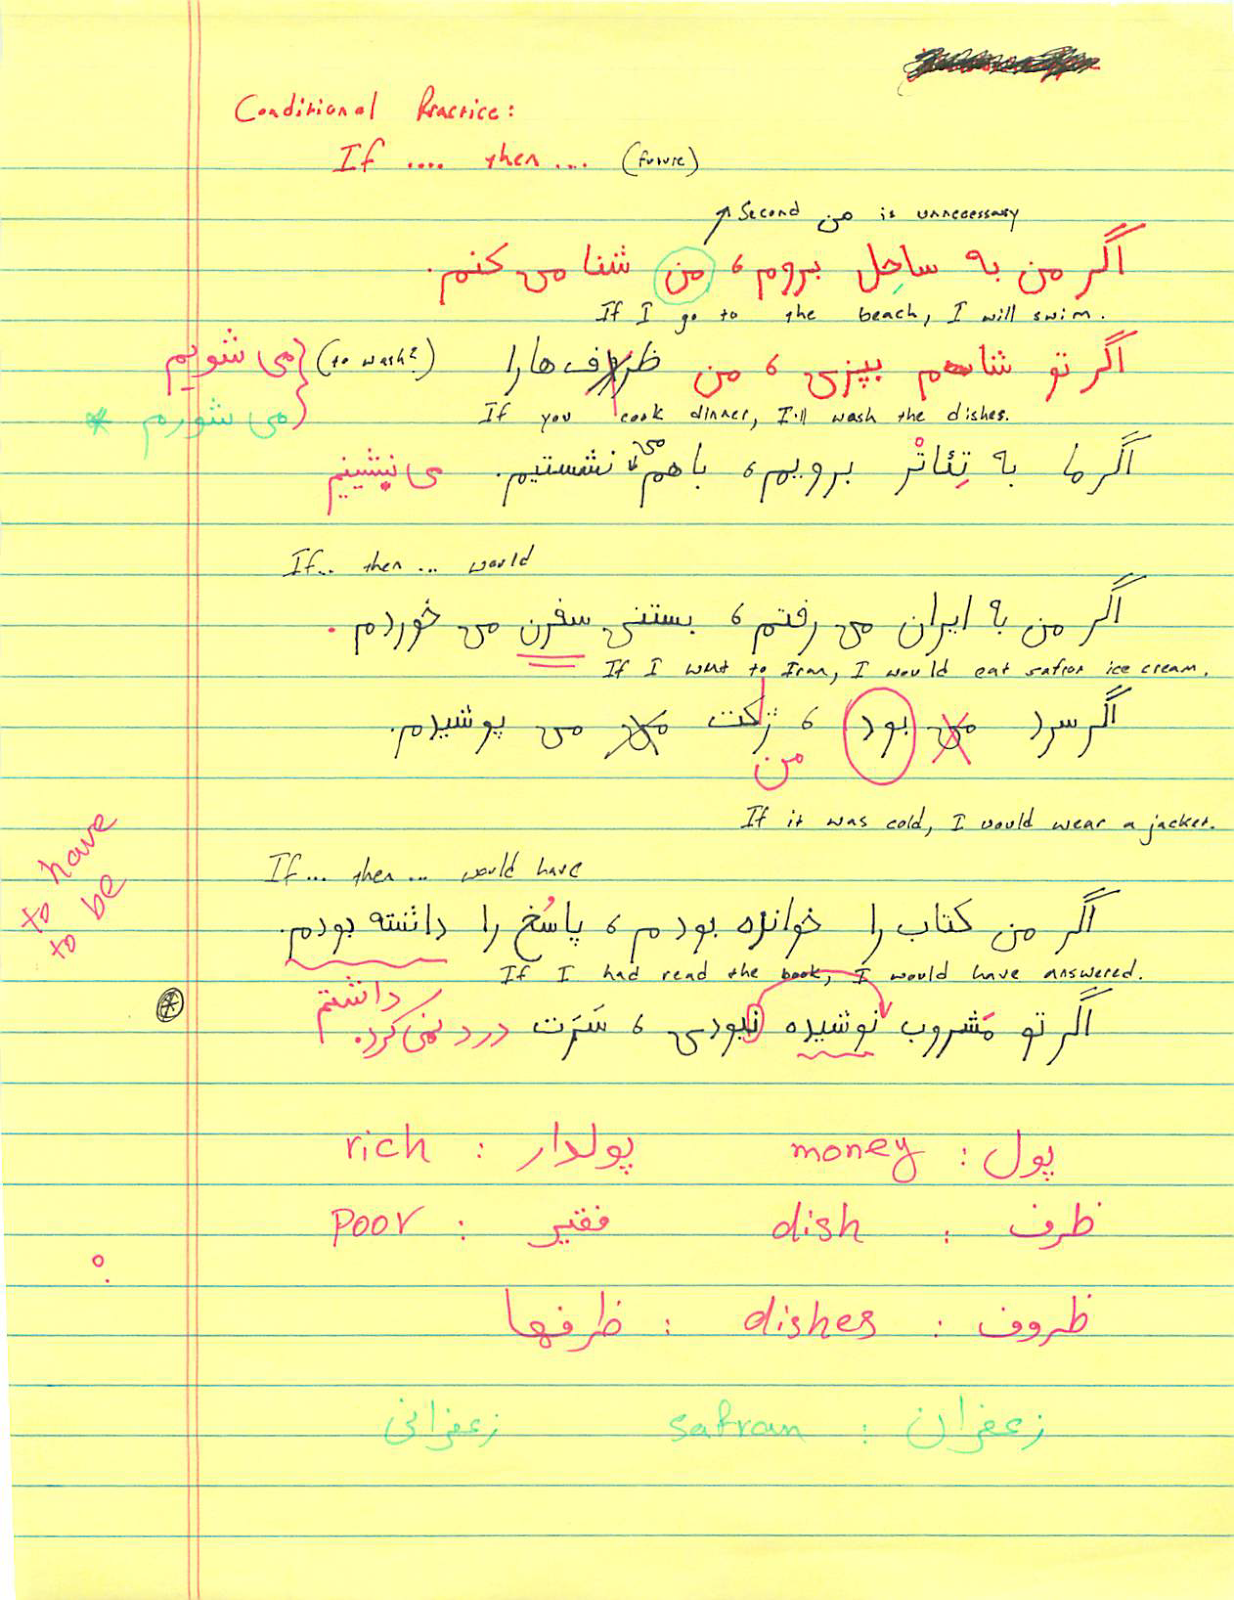 Conditional Practice:
If .... then .... (future)
Second من is unnecessary
اگر من به ساحِل بروم، من شنا می کنم.
If I go to the beach, I will swim.
اگر تو شاهم بپزی، من ظرف ها را (to wash?) می شویم
If you cook dinner, I'll wash the dishes.
می شورم *
اگر ما به تِئاتْر برویم، با هم می نشستیم. می نشینیم
If... then ... would
اگر من به ایران می رفتم، بستنی سفرن می خوردم.
If I went to Iran, I would eat safron ice cream.
اگر سرد می بود، ژکت من می پوشیدم.
من
If it was cold, I would wear a jacket.
to have
to be
If... then... would have
اگر من کتاب را خوانده بودم، پاسُخ را داشته بودم.
If I had read the book, I would have answered.
داشتم
اگر تو مَشروب نوشیده نبودی، سَرَت درد نمی کرد.
پول : money پولدار : rich
ظرف : dish فقیر : poor
ظروف : dishes : ظرفها
زعفران : safran زعفرانی